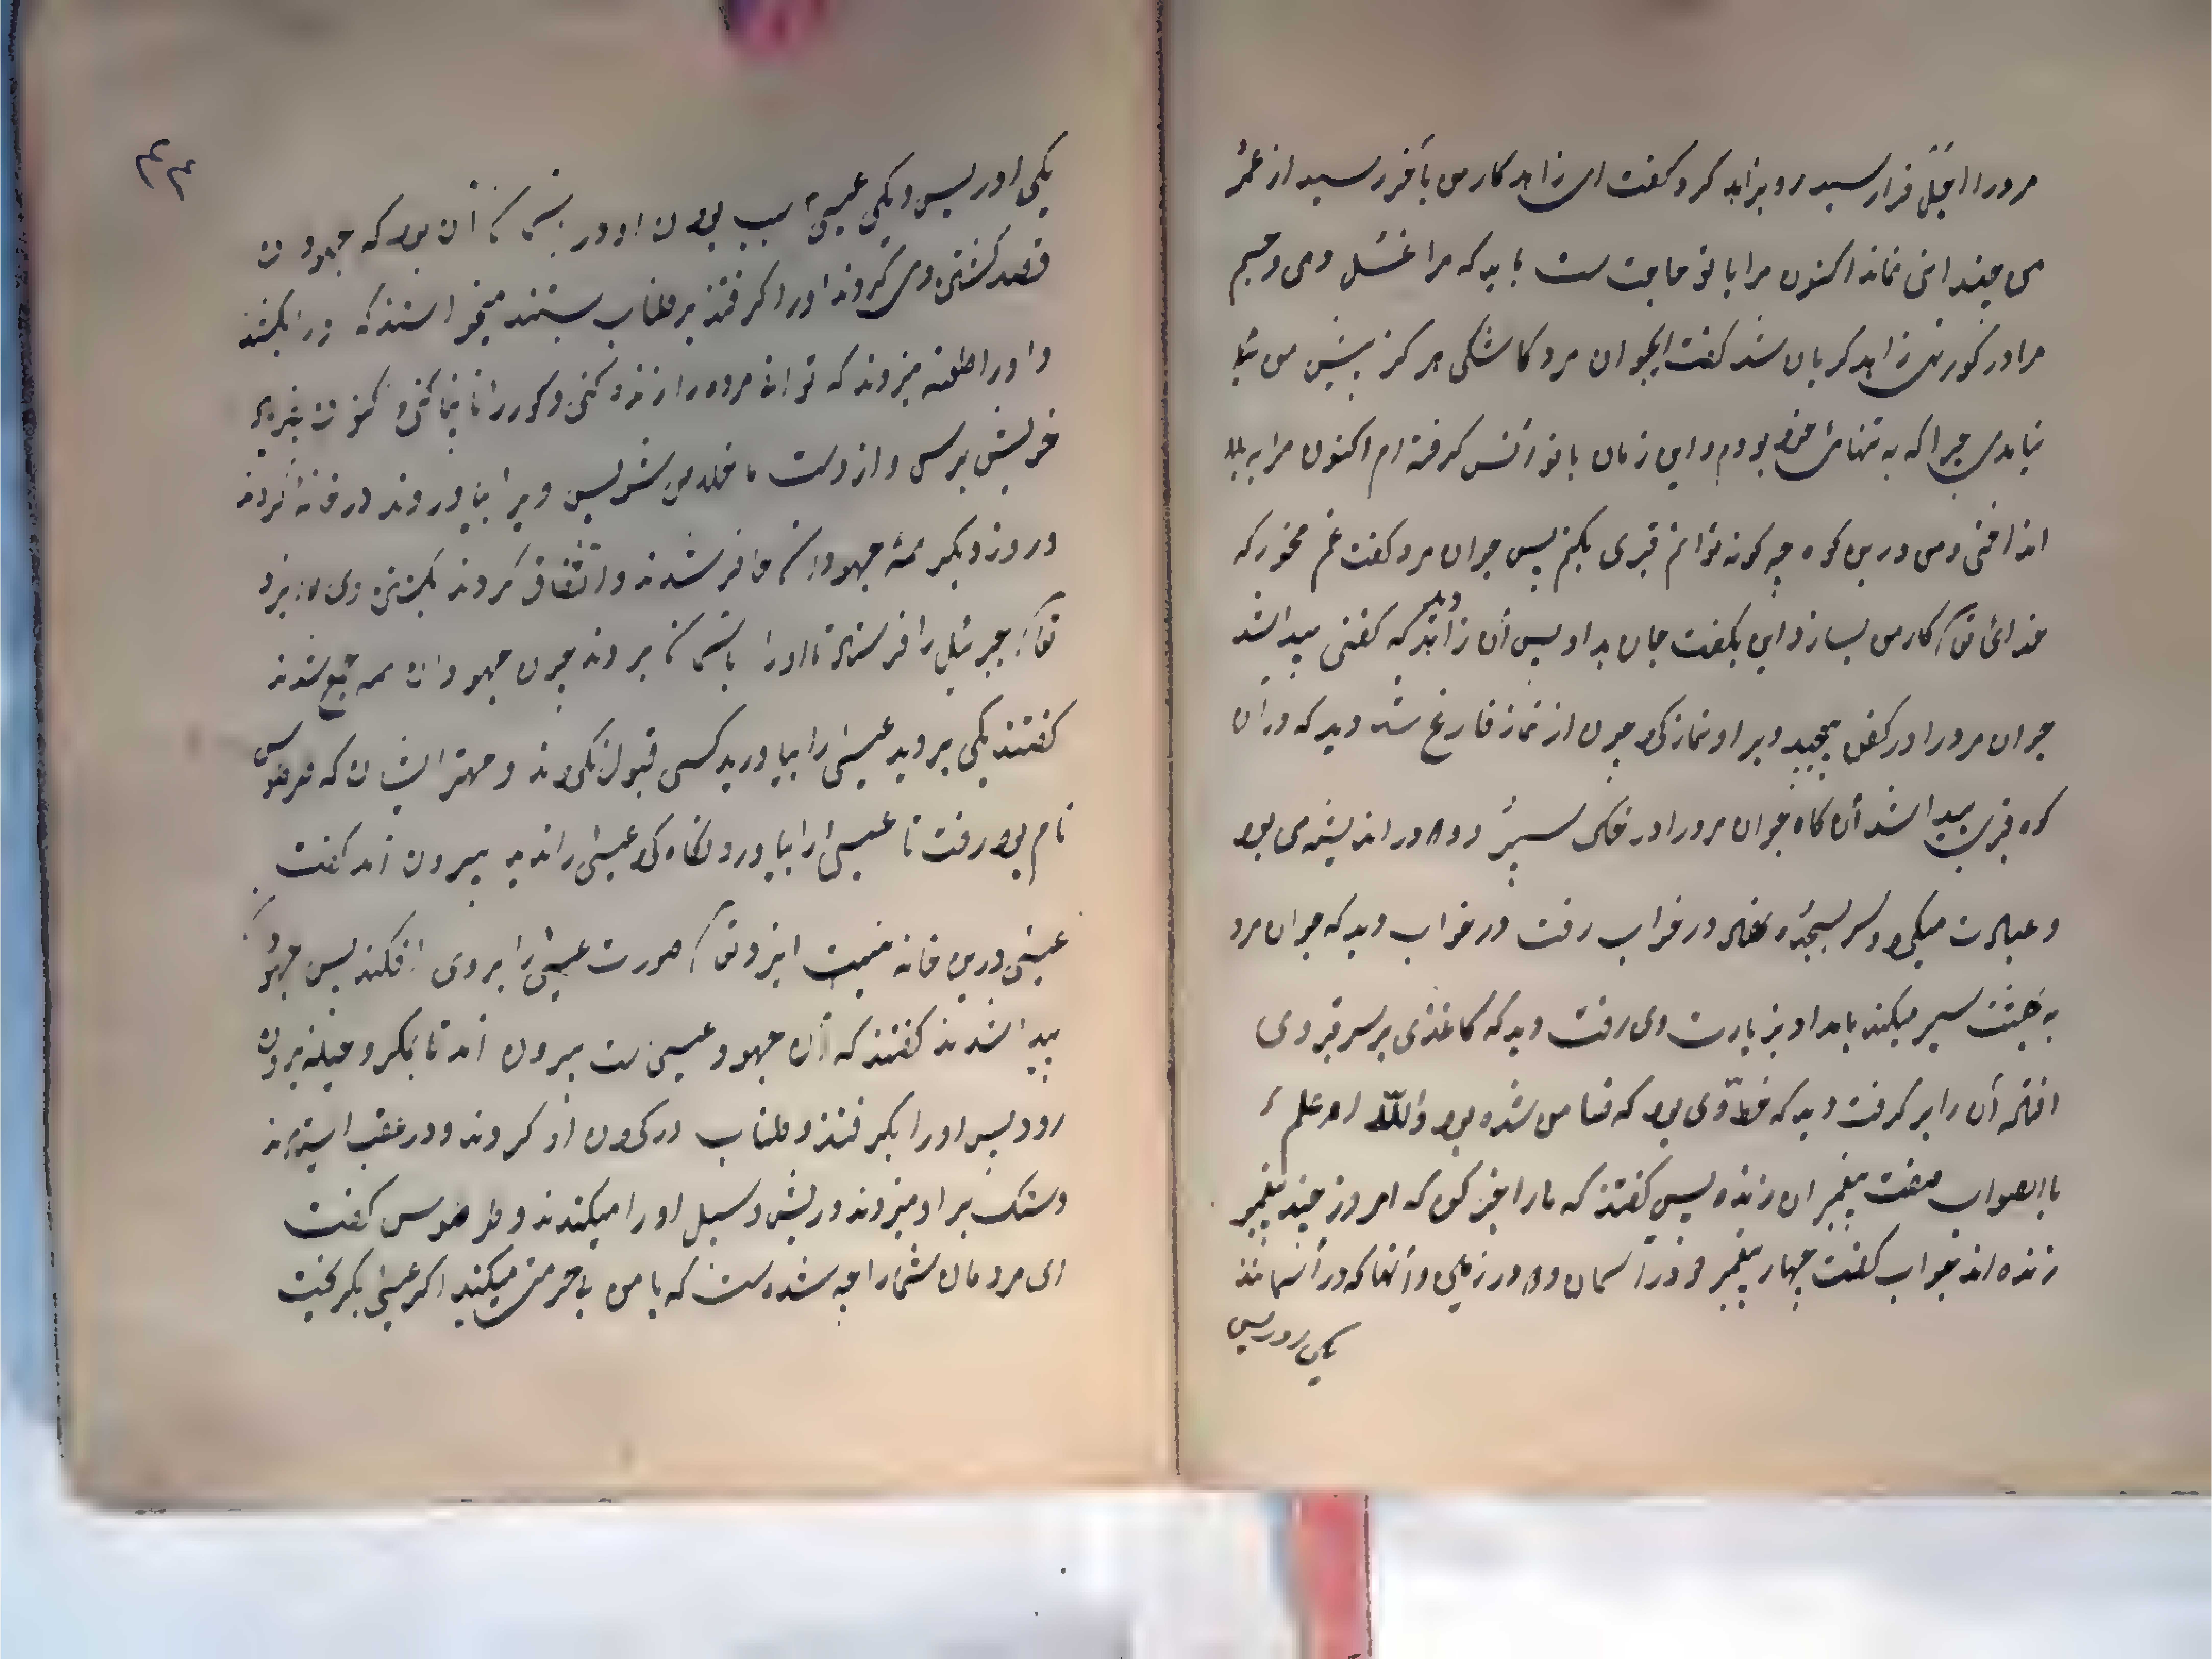 مرد را اجل فرا رسید رو بزاهد کرد و گفت ای زاهد کار من بآخر رسید از عمر
من چندانی نماند اکنون مرا با تو حاجت ست باید که مرا غسل دهی و
مرا در گور نهی زاهد گریان شد گفت ای جوان مرد کاشکی هرگز پیش من
نیامدی چرا که به تنهائی خود بودم و این زمان با تو انس گرفته ام اکنون مرا به بلا
انداختی و من درین کوه چه گونه توانم قبری بکنم پس جوان مرد گفت غم مخور که
خدای تعالی کار من بسازد این بگفت جان بداد پس آن زاهد دید که کفنی پیدا شد
جوان مرد را در کفن پیچید و بر او نماز کرد چون از نماز فارغ شد دید که در آن
کوه قبری پیدا شد آن گاه جوان مرد را در خاک سپرد و در اندیشه می بود
و عبادت میکرد و سر بسجده نهاد در خواب رفت در خواب دید که جوان مرد
به بهشت سیر میکند بامداد بزیارت وی رفت دید که کاغذی بر سر قبر وی
افتاده آن را بر گرفت دید که خط وی بود که ضامن شده بود والله اعلم
باالصواب صفت پیغمبران زنده پس گفتند که ما را خبر کن که امروز چند پیغمبر
زنده اند جواب گفت چهار پیغمبر دو در آسمان و دو در زمین و آنها که در آسمانند
یکی ادریس
۴۴
یکی ادریس و یکی عیسی سبب بودن او در آسمان آن بود که جهودان
قصد کشتن وی کردند او را گرفتند بر طناب بستند میخواستند که ورا بکشند
و او را طعنه میزدند که توانی مرده را زنده کنی و کور را بینا کنی اکنون
خویش برس و از دست ما خلاص شو پس ویرا بیاوردند در خانه کردند
و روز دیگر همه جهودان حاضر شدند و اتفاق کردند بکشتن وی ایزد
تعالی جبرئیل را فرستاد تا او را باسمان بردند چون جهودان همه جمع شدند
گفتند یکی بروید عیسی را بیاورید کسی قبول نکردند و مهتر ایشان که طرطوس
نام بود رفت تا عیسی را بیاورد نگاه کرد عیسی را ندید بیرون آمد گفت
عیسی درین خانه نیست ایزد تعالی صورت عیسی را بر وی افکند پس جهود
پیدا شدند گفتند که آن جهود عیسی ست بیرون آمد تا بمکر و حیله بیرون
رود پس او را بگرفتند و طناب در گردن او کردند و در عقب
دستک بر او میزدند و ریش و سبیل او را میکندند و طرطوس گفت
ای مردمان شما را چه شده ست که با من بی حرمتی میکنید اگر عیسی بگریخت